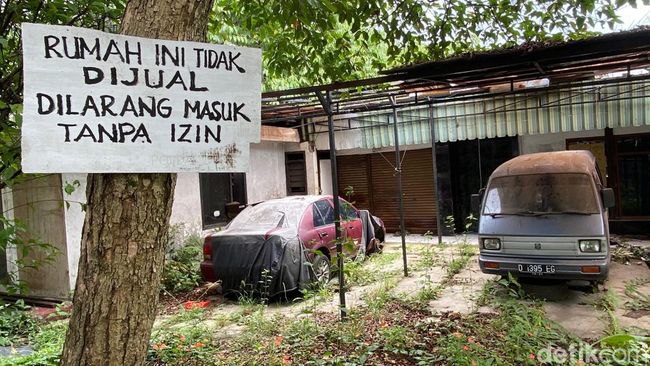 RUMAH INI TIDAK
DIJUAL
DILARANG MASUK
TANPA IZIN
D 1395 EG
detikcom